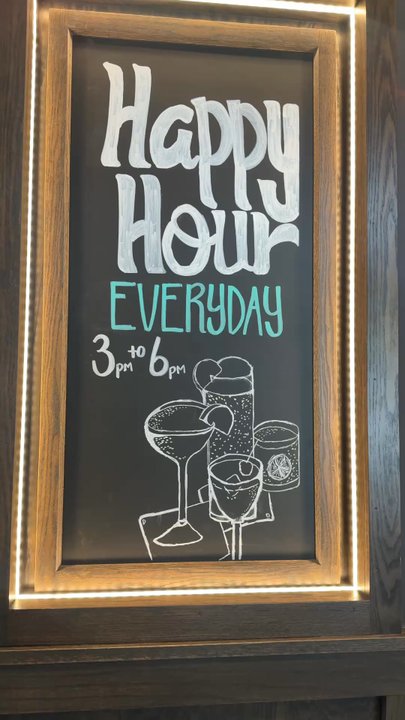 Happy
Hour
EVERYDAY
3pm to 6pm